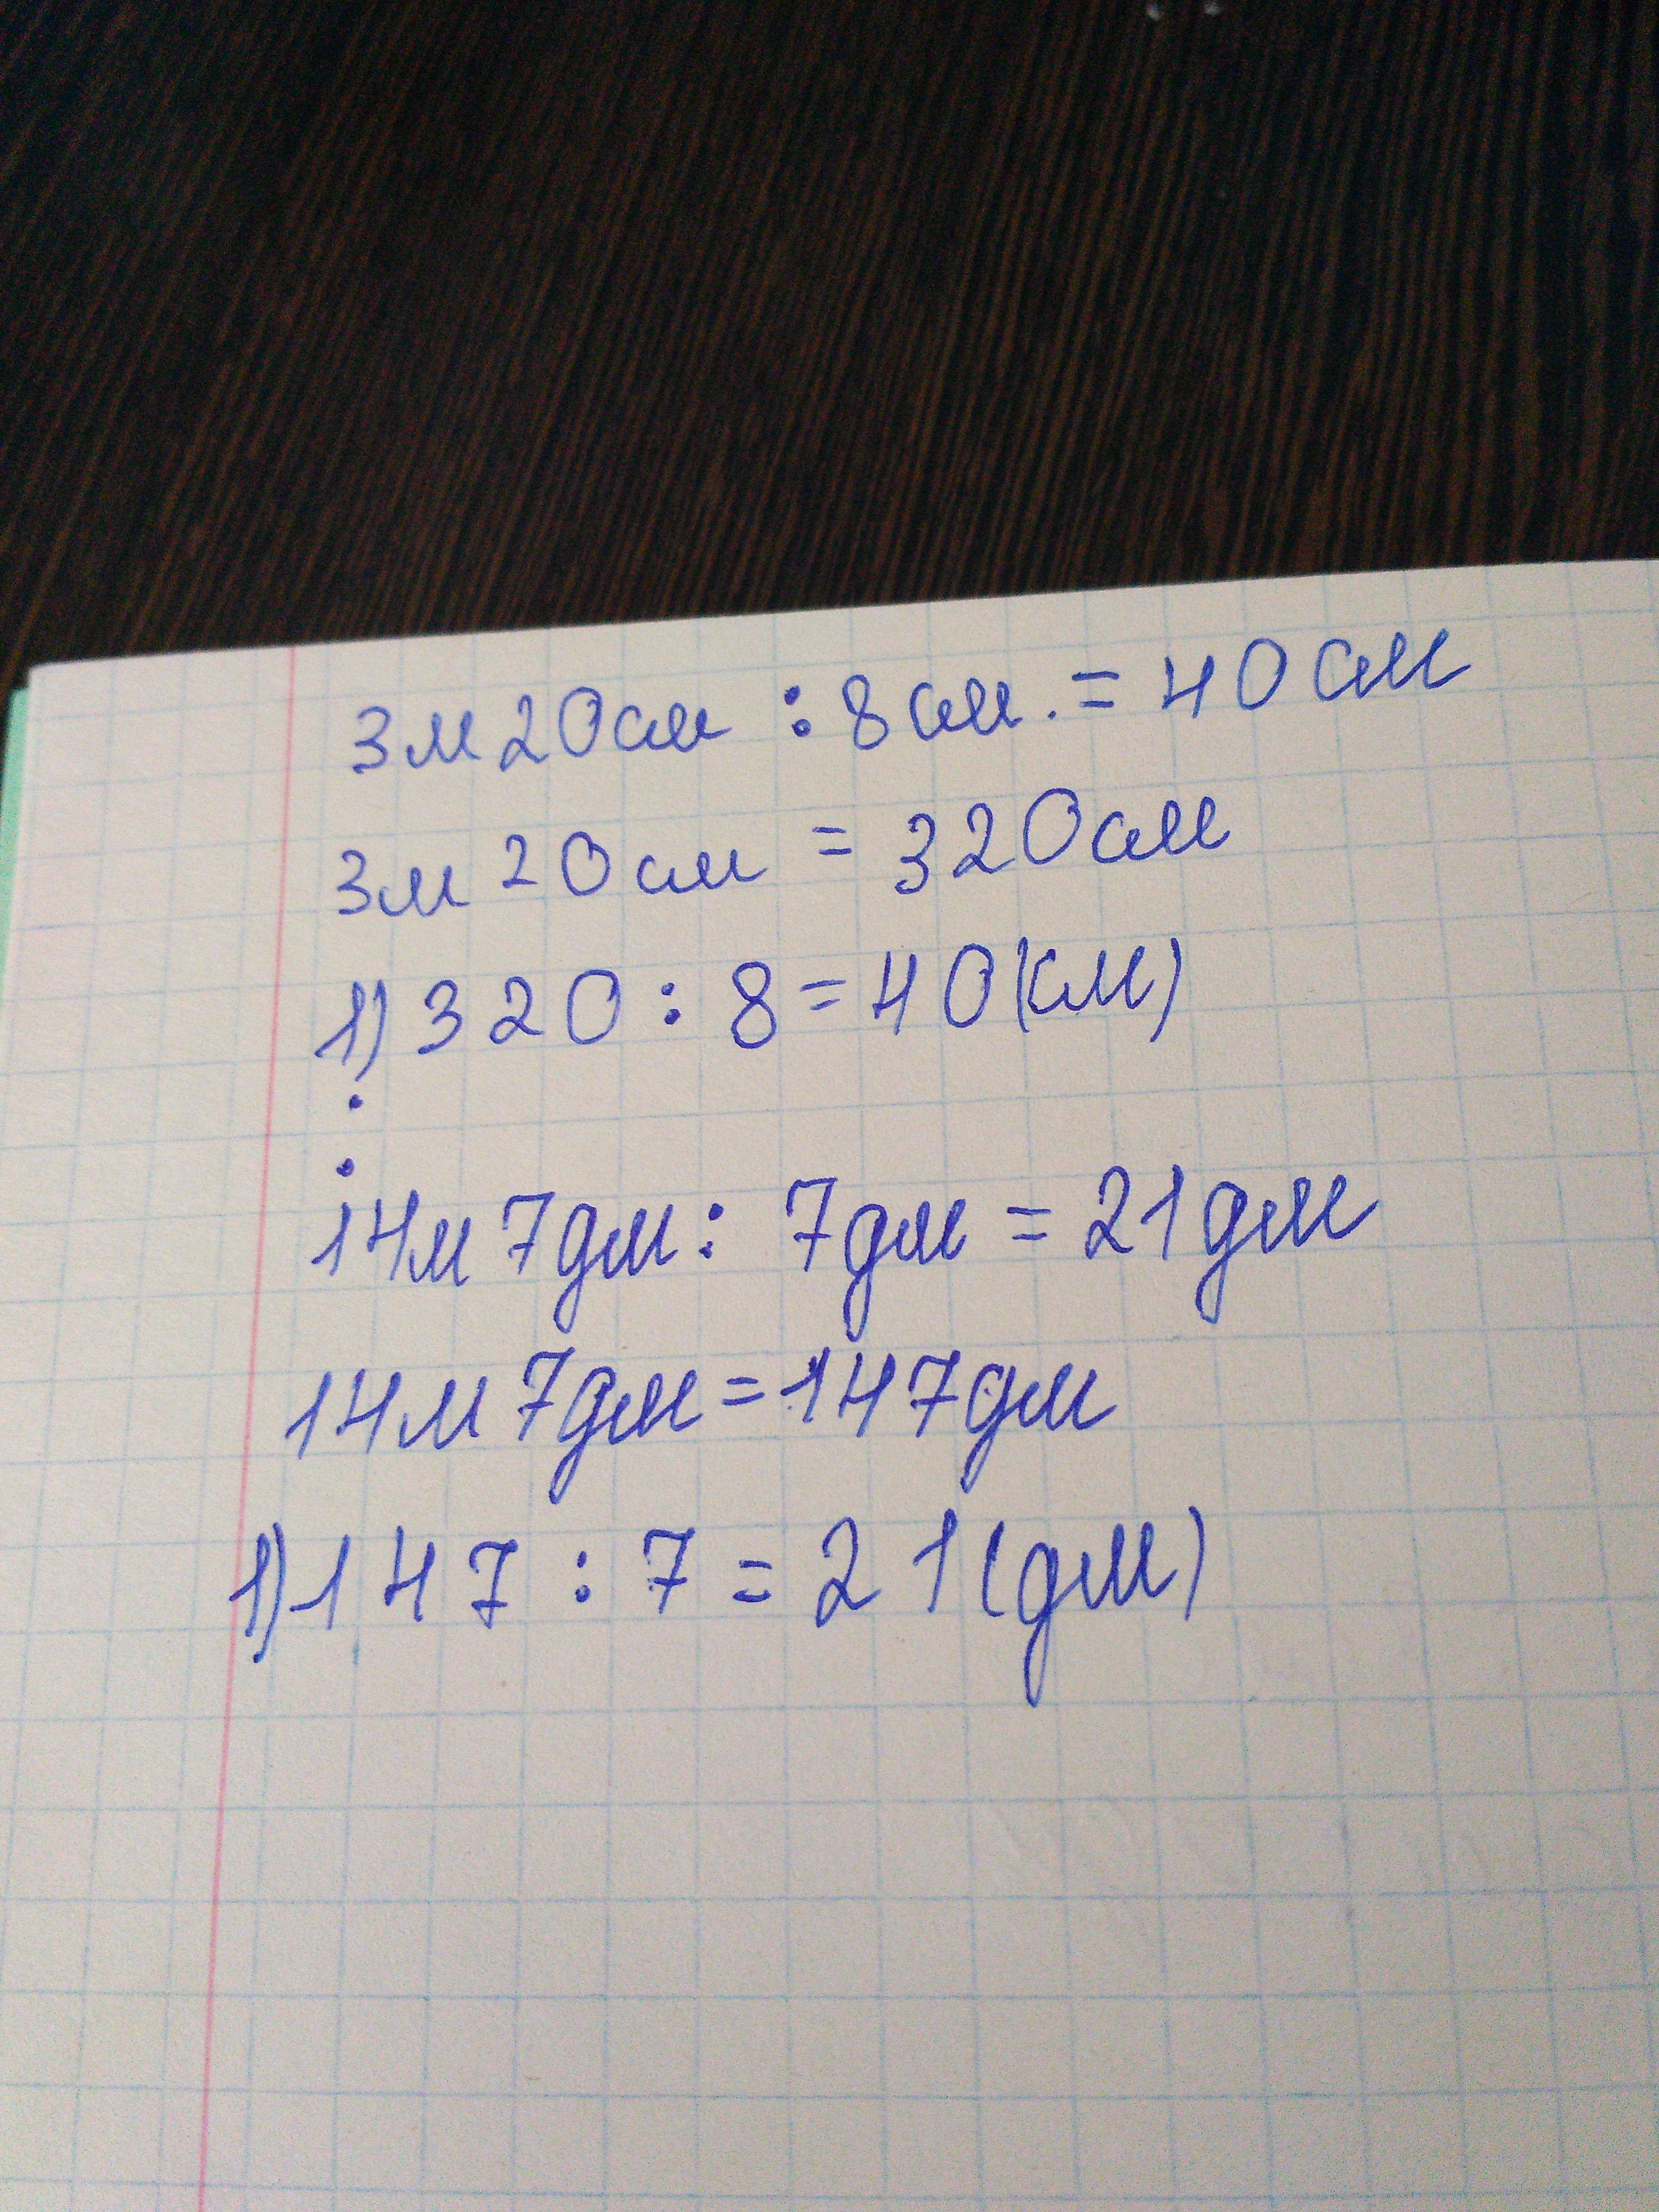 3м20см : 8см. = 40см
3м 20см = 320см
1) 320 : 8 = 40(км)
14м 7дм : 7дм = 21дм
14м 7дм = 147дм
1) 147 : 7 = 21(дм)